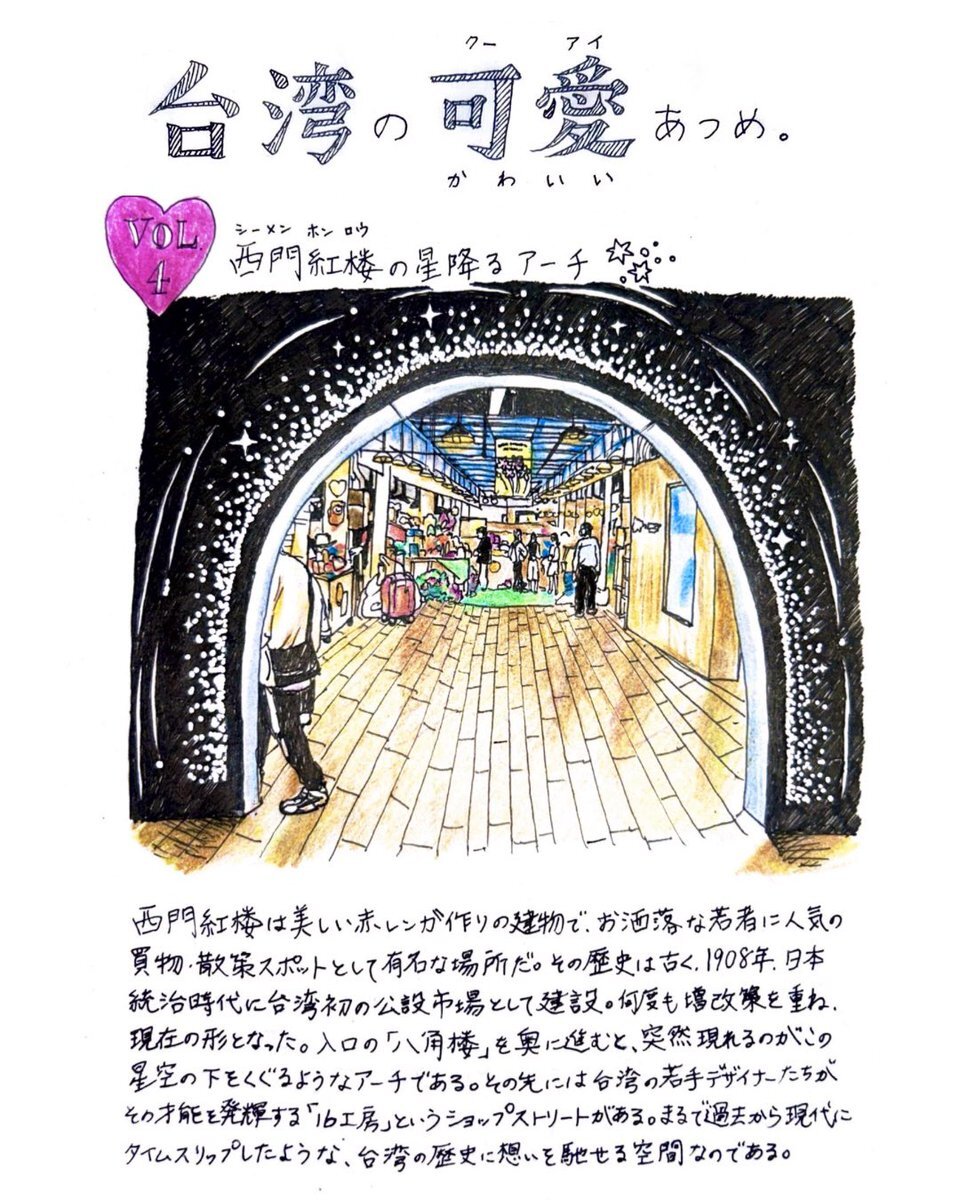 クー アイ
台湾の可愛あつめ。
かわいい
VOL.
4
シーメン ホン ロウ
西門紅楼の星降るアーチ
西門紅楼は美しい赤レンガ作りの建物で、お洒落な若者に人気の
買物・散策スポットとして有名な場所だ。その歴史は古く、1908年、日本
統治時代に台湾初の公設市場として建設。何度も増改築を重ね、
現在の形となった。入口の「八角楼」を奥に進むと、突然現れるのがこの
星空の下をくぐるようなアーチである。その先には台湾の若手デザイナーたちが
その才能を発揮する「16工房」というショップストリートがある。まるで過去から現代に
タイムスリップしたような、台湾の歴史に想いを馳せる空間なのである。